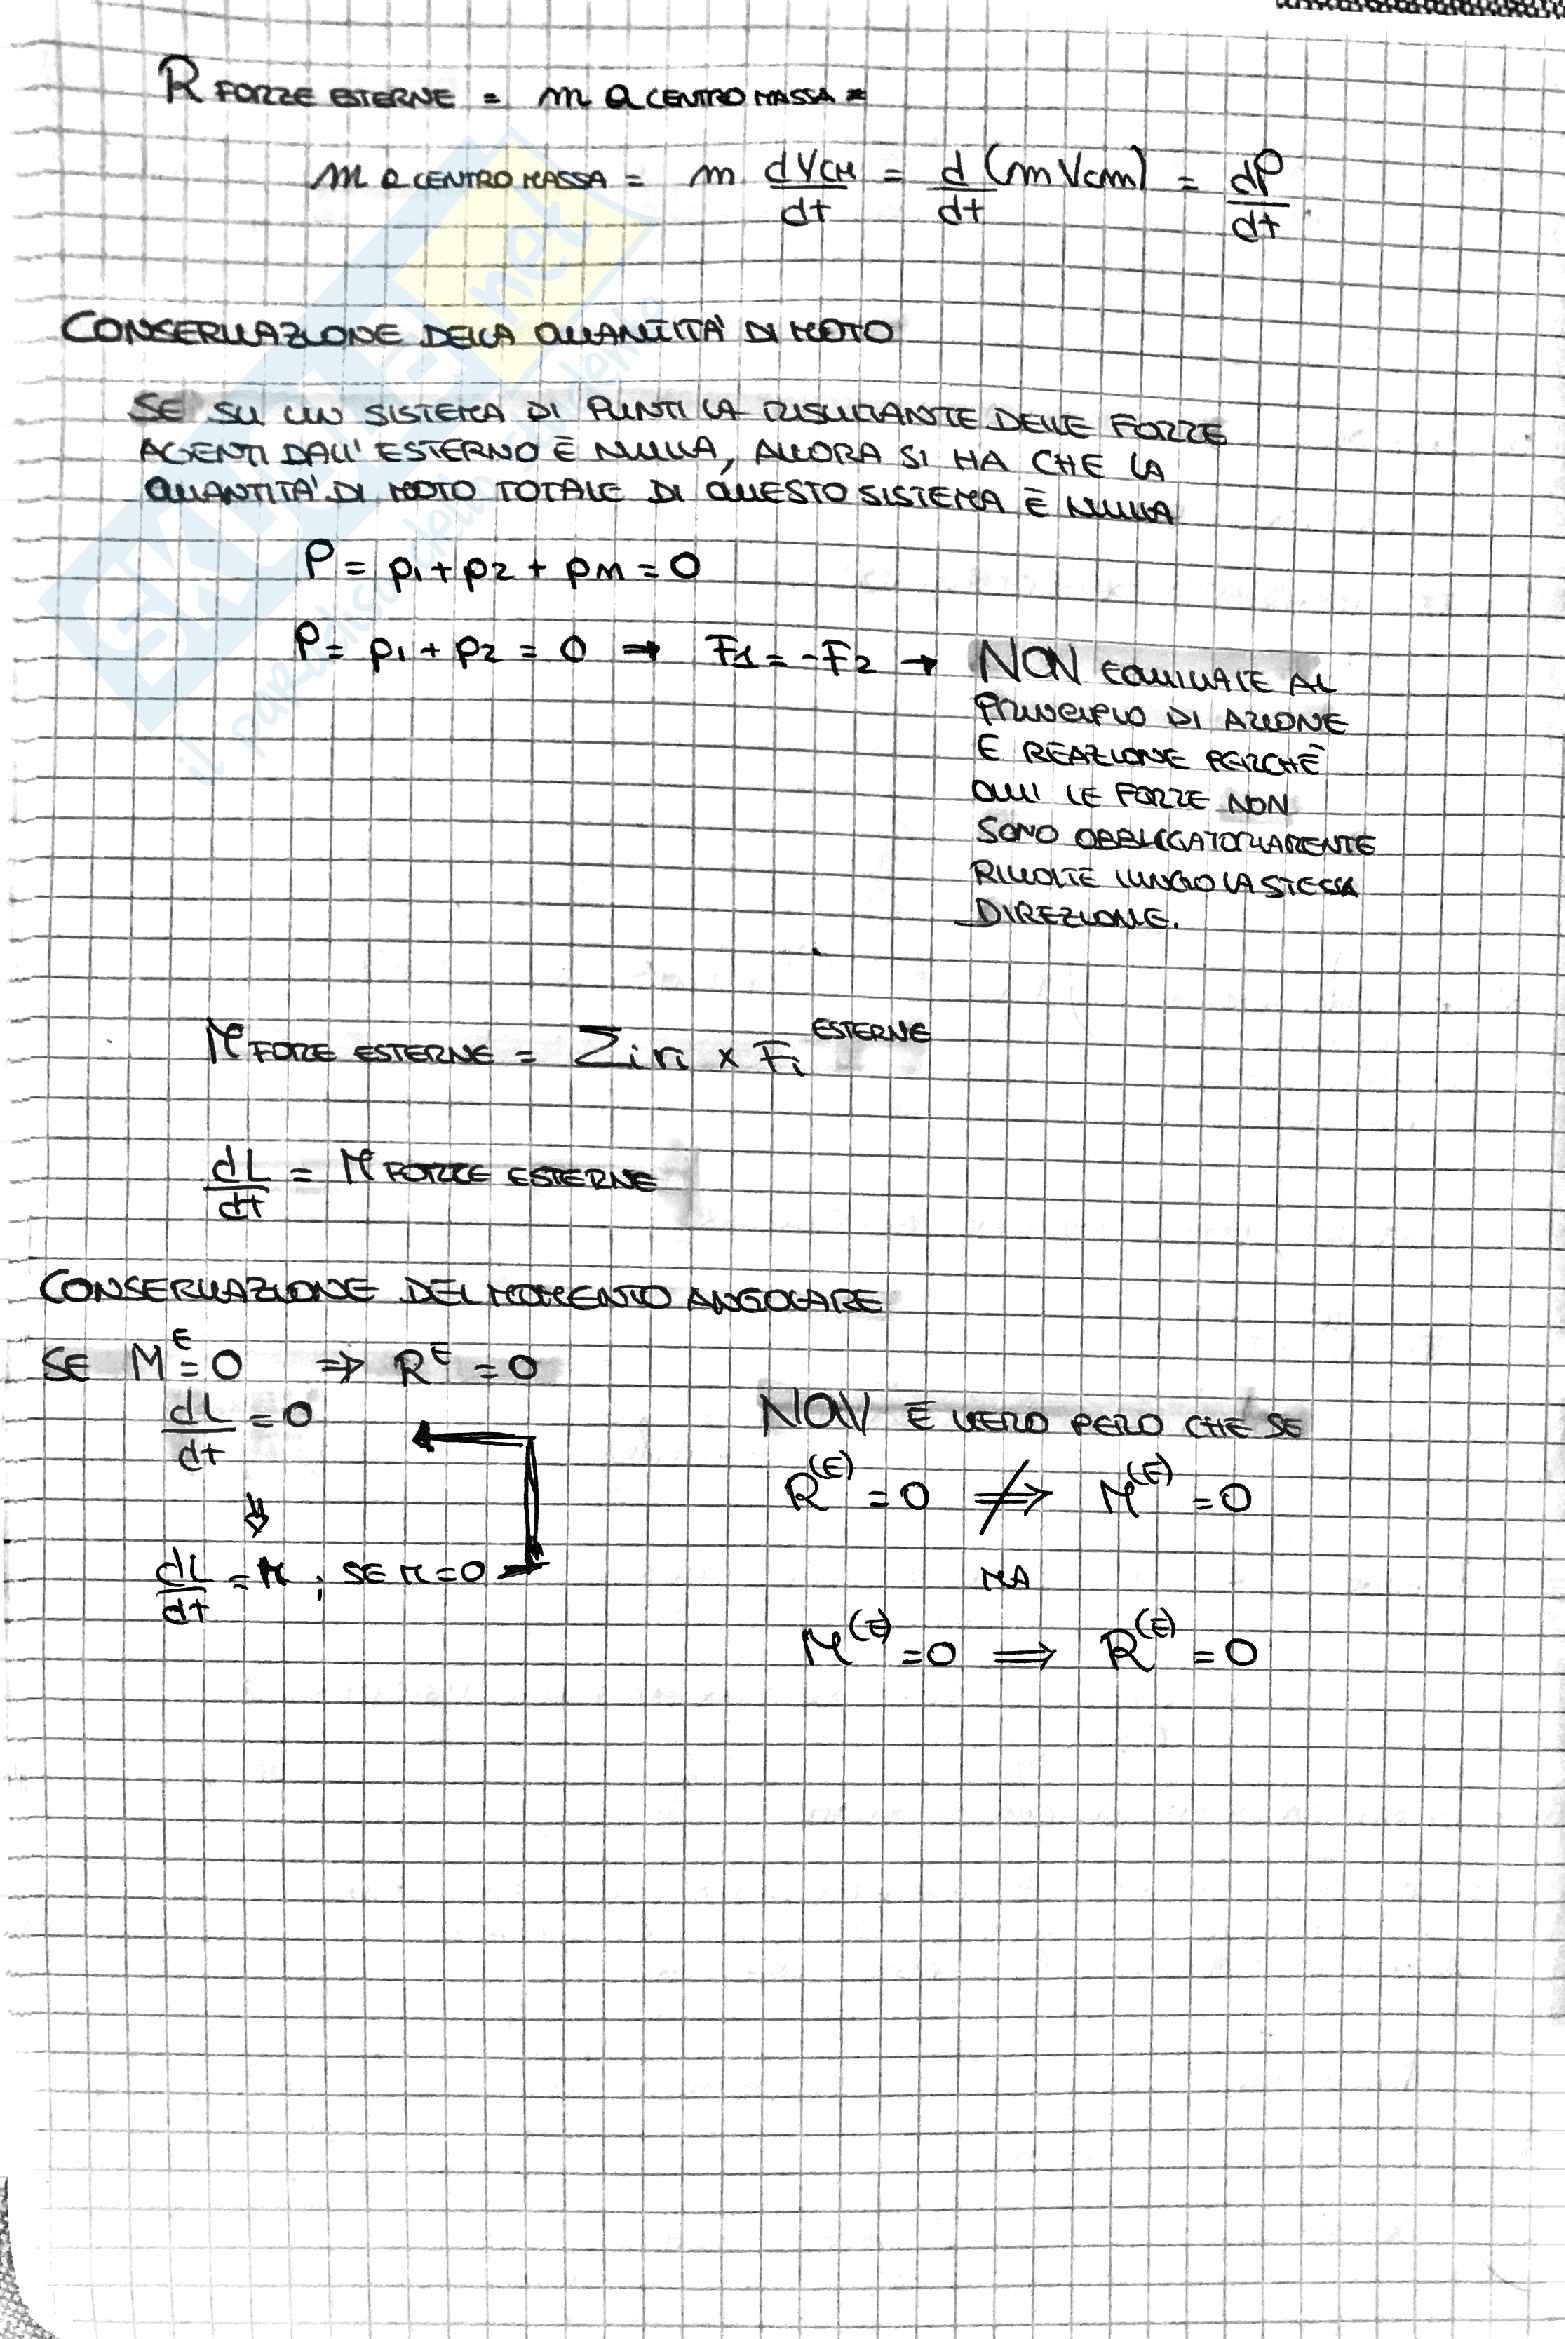 R FORZE ESTERNE = m a CENTRO MASSA =
m a CENTRO MASSA = m dVCM/dt = d/dt (m Vcm) = dP/dt
CONSERVAZIONE DELLA QUANTITA' DI MOTO
SE SU UN SISTEMA DI PUNTI LA RISULTANTE DELLE FORZE
AGENTI DALL'ESTERNO È NULLA, ALLORA SI HA CHE LA
QUANTITA' DI MOTO TOTALE DI QUESTO SISTEMA È NULLA
P = p1 + p2 + pm = 0
P = p1 + p2 = 0 ⇒ F1 = -F2 → NON EQUIVALE AL
PRINCIPIO DI AZIONE
E REAZIONE PERCHÈ
QUI LE FORZE NON
SONO OBBLIGATORIAMENTE
RIVOLTE LUNGO LA STESSA
DIREZIONE.
M FORZE ESTERNE = Σi ri × Fi ESTERNE
dL/dt = M FORZE ESTERNE
CONSERVAZIONE DEL MOMENTO ANGOLARE
SE M^E = 0 ⇒ R^E = 0
dL/dt = 0
⇓
dL/dt = M ; SE M = 0
NON È VERO PERO CHE SE
R^(E) = 0 ⇏ M^(E) = 0
MA
M^(E) = 0 ⇒ R^(E) = 0
SKUOLA.net
il paradiso dello studente